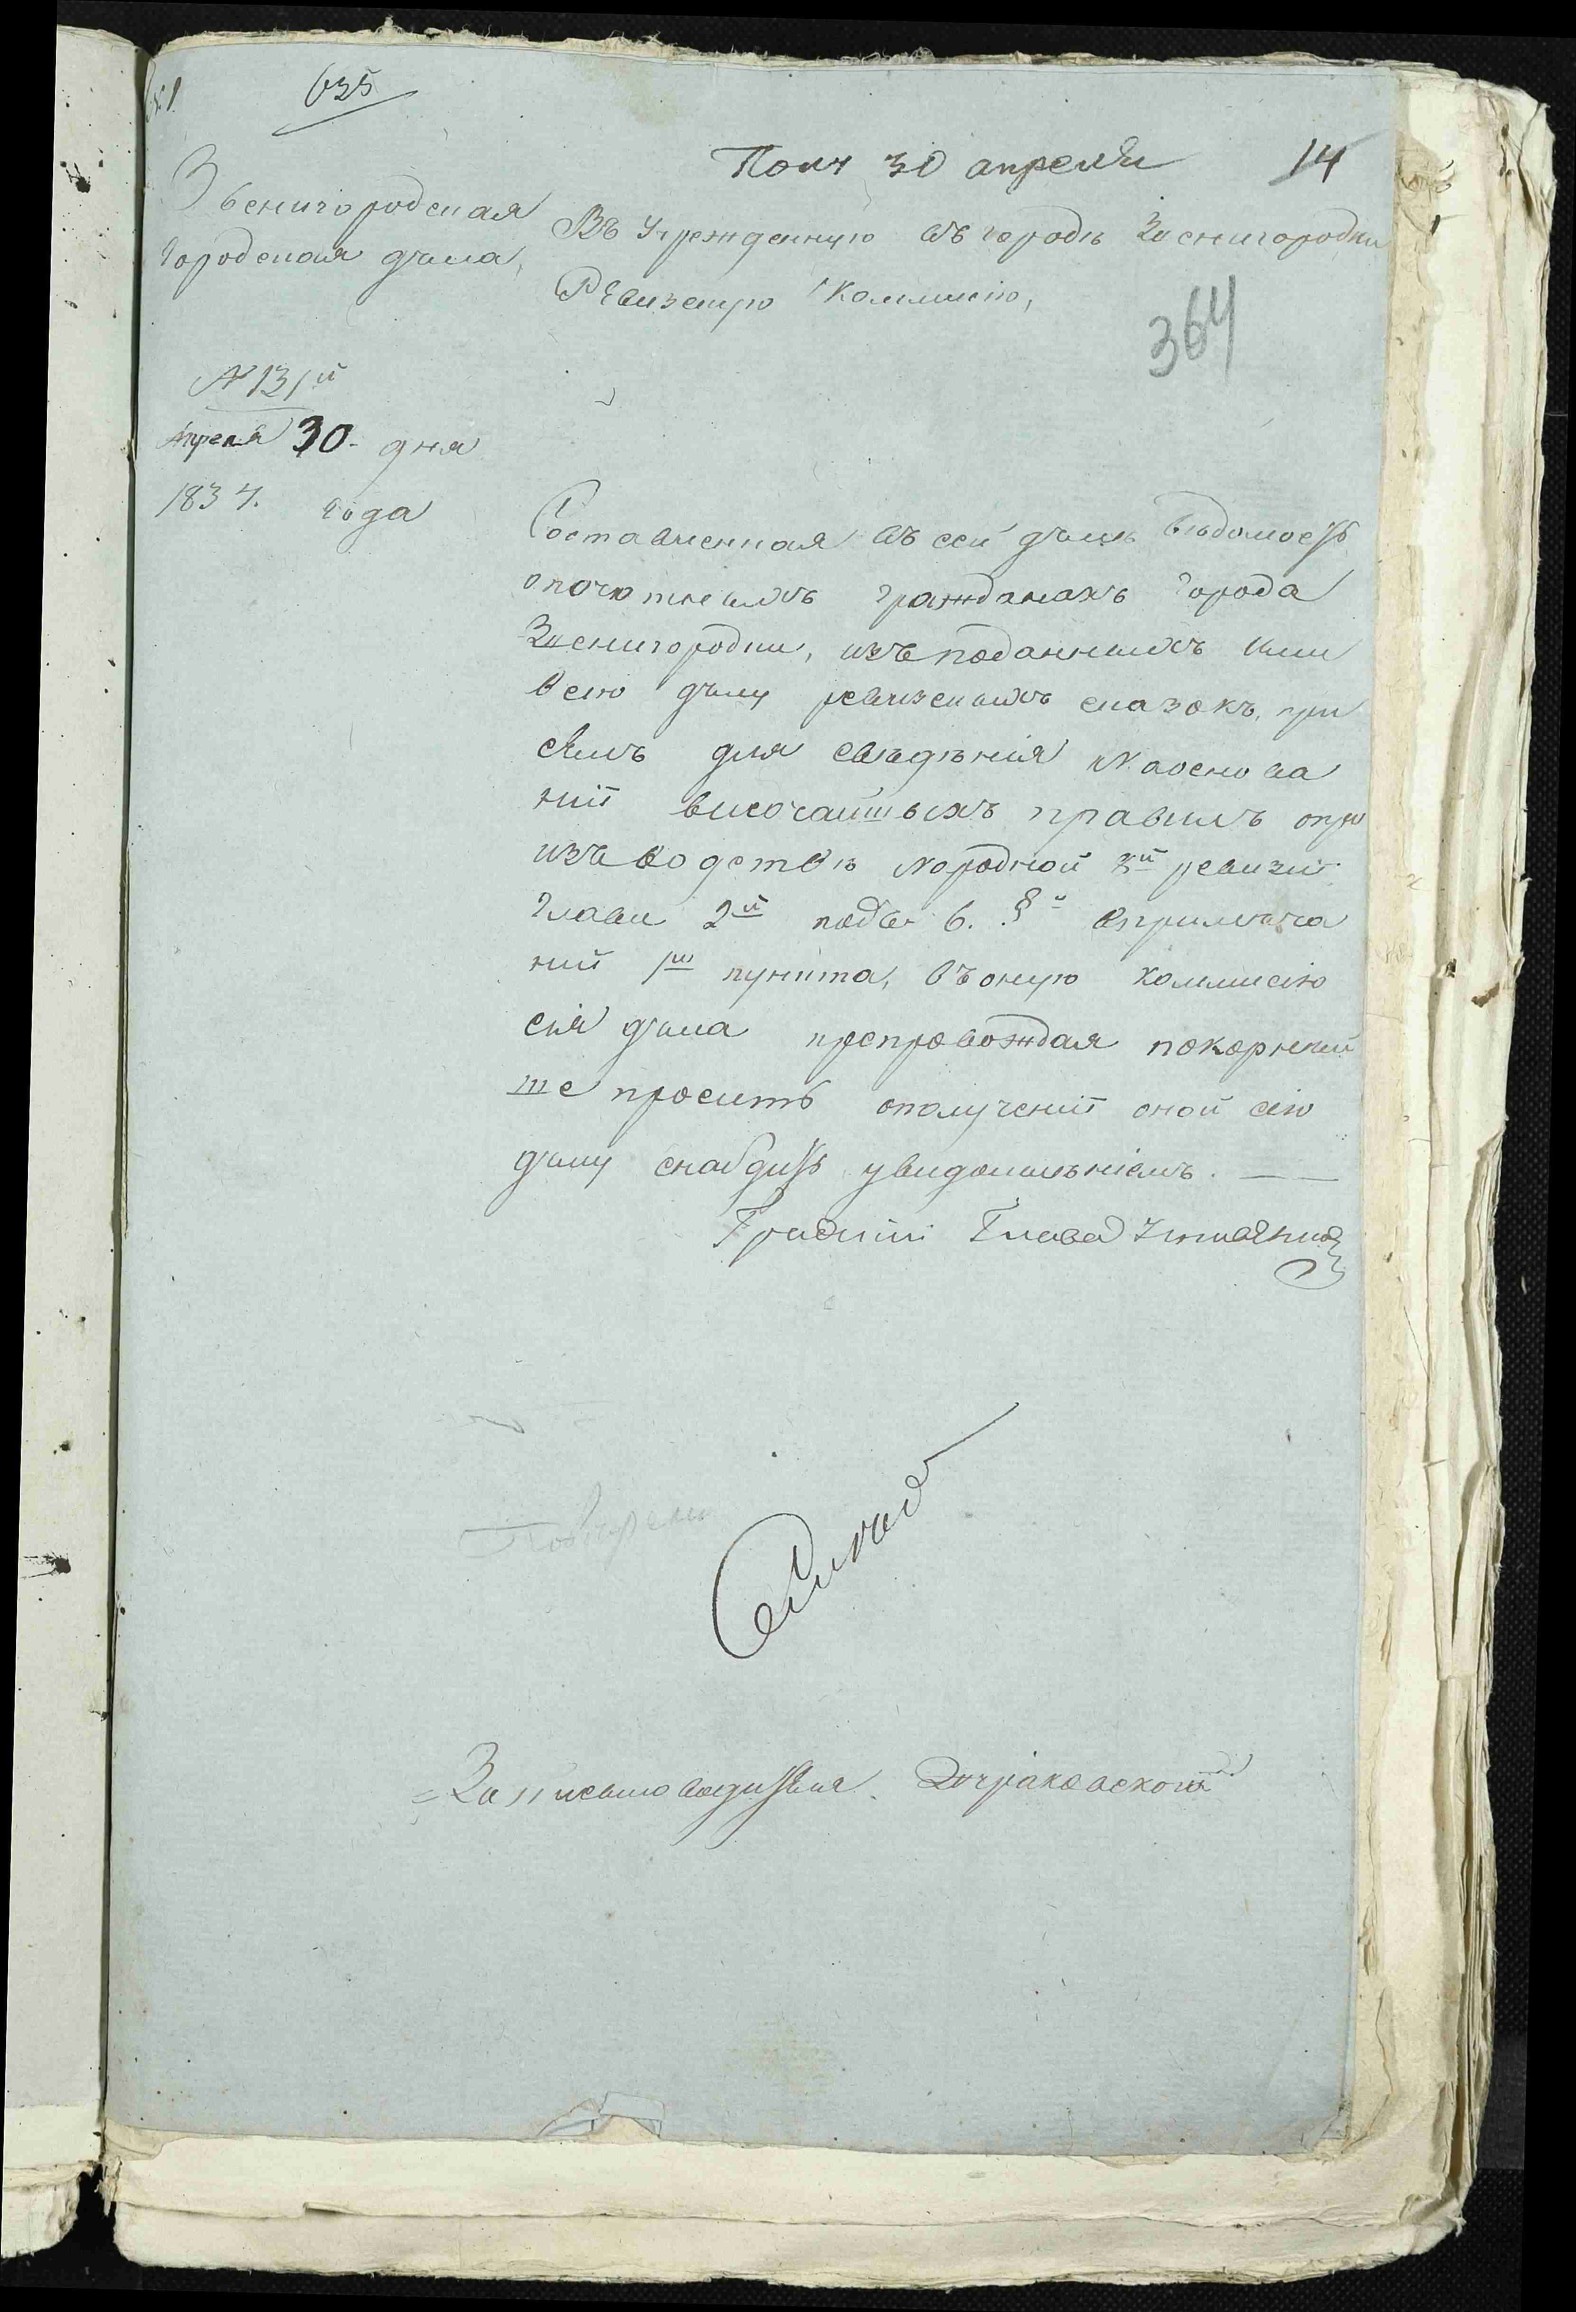 635
Полч 30 апреля 14
Звенигородская
городская дума,
Въ Учрежденную въ городѣ Звенигородки
Ревизскую Коммисію,
364
№ 131й
Апреля 30 дня
1834. года
Составленная въ сей думѣ вѣдомость
о почотныхъ гражданахъ города
Звенигородки, изъ поданныхъ ими
в сию думу ревизскихъ сказокъ, при
семъ для свѣдѣния на основа
нии височайшыхъ правилъ о про
изъводствѣ народной 8й ревизии
глави 2й подъ 6. § в примѣча
нии 1го пункта, въ оную коммисію
сия дума препровождая покорнѣй
ше проситъ о получении оной сию
думу снабдить увидомлѣніемъ.
Градский Глава
За писмоводителя